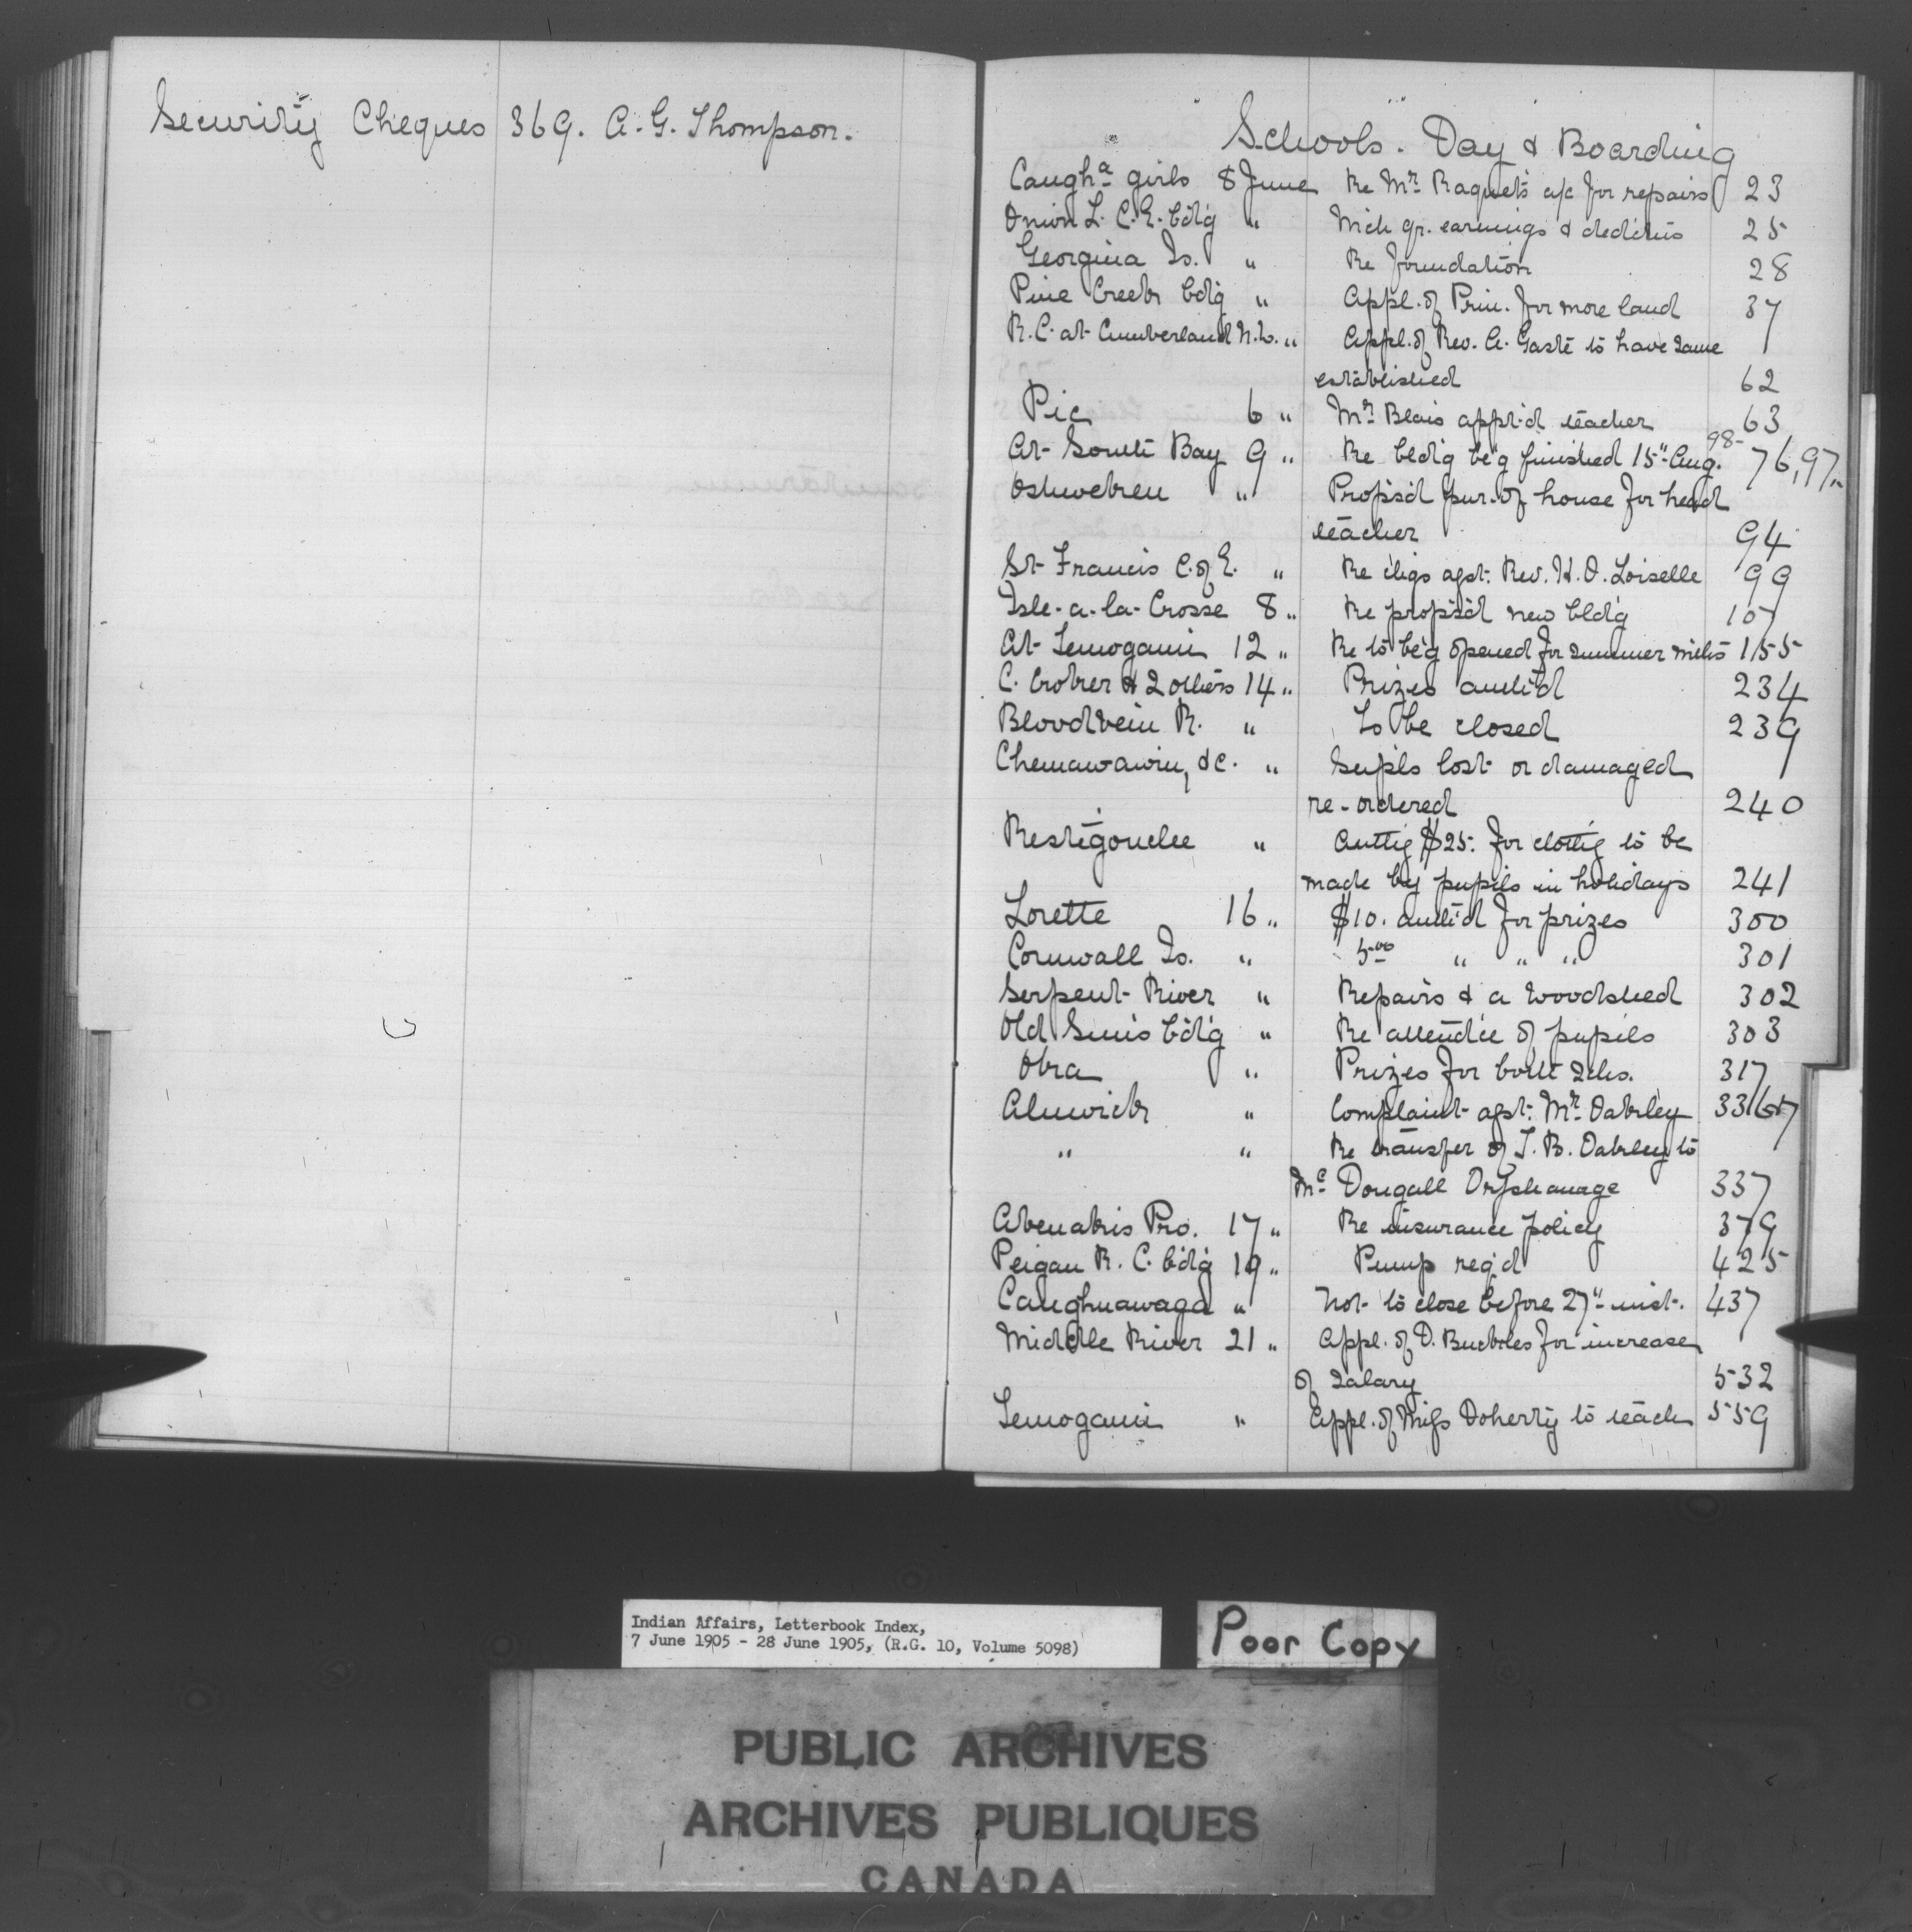 Security Cheques 369. A. G. Thompson.
Schools. Day & Boarding
Caugha girls 8 June Re Mr. Raquet's a/c for repairs 23
Onion L. C.E. bd'g " Mch qr. earnings & ded'ctns 25
Georgina Is. " Re foundation 28
Pine Creek bd'g " Appl. of Prin. for more land 37
R.C. at Cumberland N.W. " Appl. of Rev. A. Gasté to have same
established 62
Pic 6 " Mr. Blais appt'd teacher 63
At South Bay 9 " Re bld'g be'g finished 15" Aug. 76, 97, 98
Oshweken " Propos'd pur. of house for head
teacher 94
St Francis C. of E. " Re ch'gs agst. Rev. H. O. Loiselle 99
Isle-a-la-Crosse 8 " Re propos'd new bld'g 107
At Temogami 12 " Re to be'g opened for summer mths 155
C. Croker & 2 others 14 " Prizes auth'd 234
Bloodvein R. " To be closed 239
Chemawawin, &c. " Suppls lost or damaged
re-ordered 240
Restigouche " Auth'g $25. for cloth'g to be
made by pupils in holidays 241
Lorette 16 " $10. auth'd for prizes 300
Cornwall Is. " 5.00 " " " 301
Serpent River " Repairs & a woodshed 302
Old Sun's bd'g " Re attend'ce of pupils 303
Oka " Prizes for both schs. 317
Alnwick " Complaint agst. Mr. Oakley 336 1/2
" " Re transfer of T. B. Oakley to
Mc Dougall Orphanage 337
Abenakis Pro. 17 " Re insurance policy 379
Peigan R. C. bd'g 19 " Pump req'd 425
Caughnawaga " Not to close before 27" inst. 437
Middle River 21 " Appl. of D. Buckles for increase
of salary 532
Temogami " Appl. of Miss Doherty to teach 559
Indian Affairs, Letterbook Index,
7 June 1905 - 28 June 1905, (R.G. 10, Volume 5098)
Poor Copy
PUBLIC ARCHIVES
ARCHIVES PUBLIQUES
CANADA